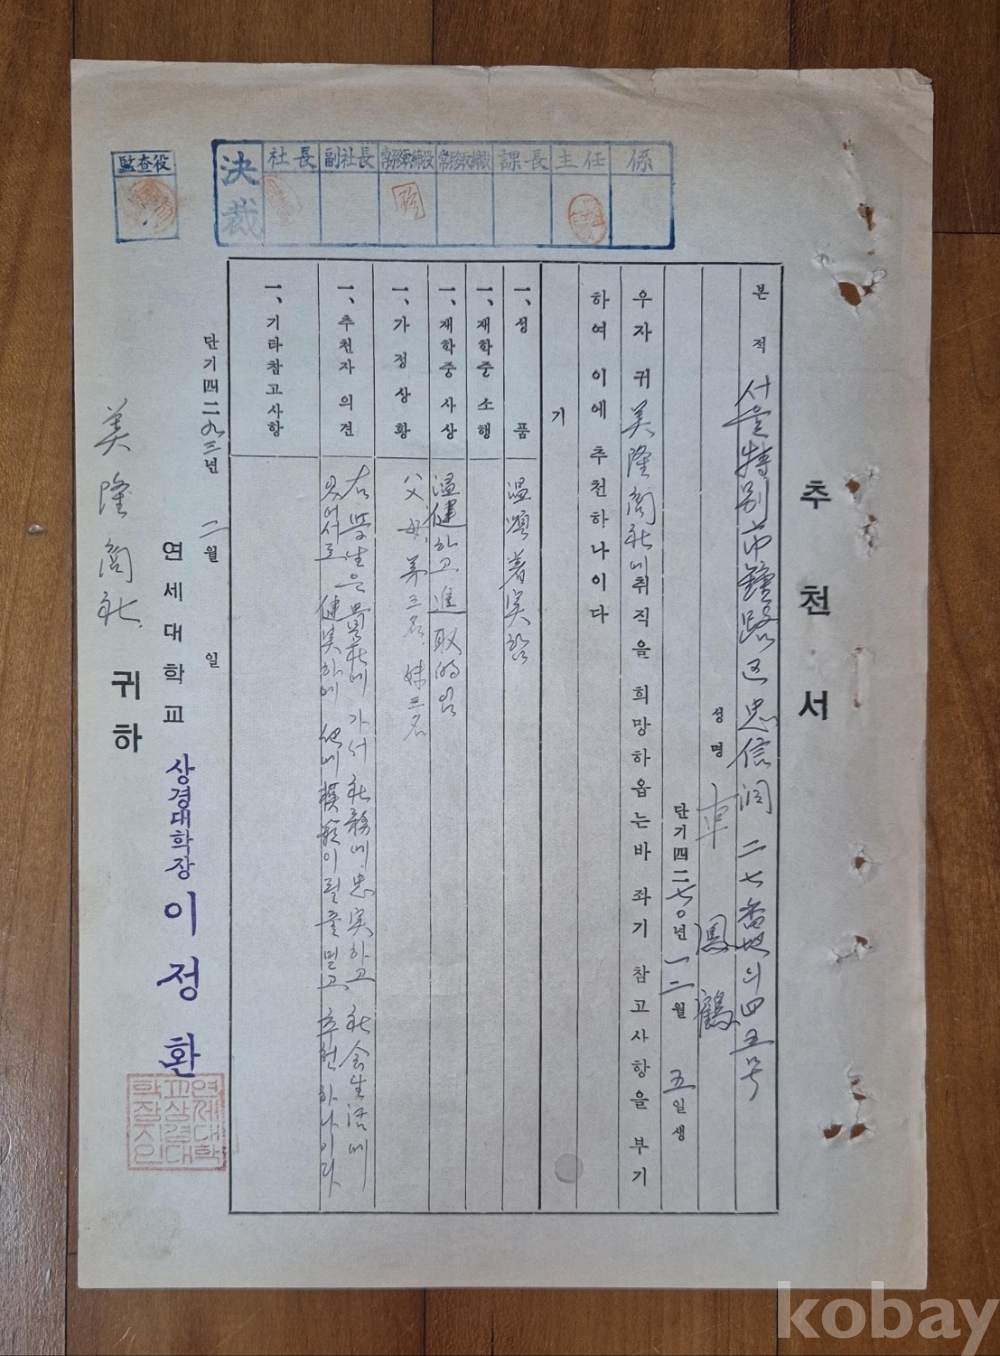 추천서
본적 서울特別市鐘路區忠信洞 二七番地의 四五号
성명 車鳳鶴
단기四二七○년 一二월 五일생
우자 귀 美隆商社에 취직을 희망하옵는바 좌기 참고사항을 부기
하여 이에 추천하나이다
기
一、성품 温順着実함
一、재학중 소행
一、재학중 사상 温健하고 進取的임
一、가정상황 父 母, 弟三名, 妹三名
一、추천자의견 右 学生은 貴社에 가서 社務에 忠実하고 社会生活에
있어서도 健実하여 他에 模範이 될줄 믿고 추천하나이다
一、기타참고사항
단기四二九三년 二월 일
연세대학교 상경대학장 이정환
연세대학교상경대학장지인
美隆商社 귀하
監査役
決裁
社長
副社長
課長
主任
係
kobay